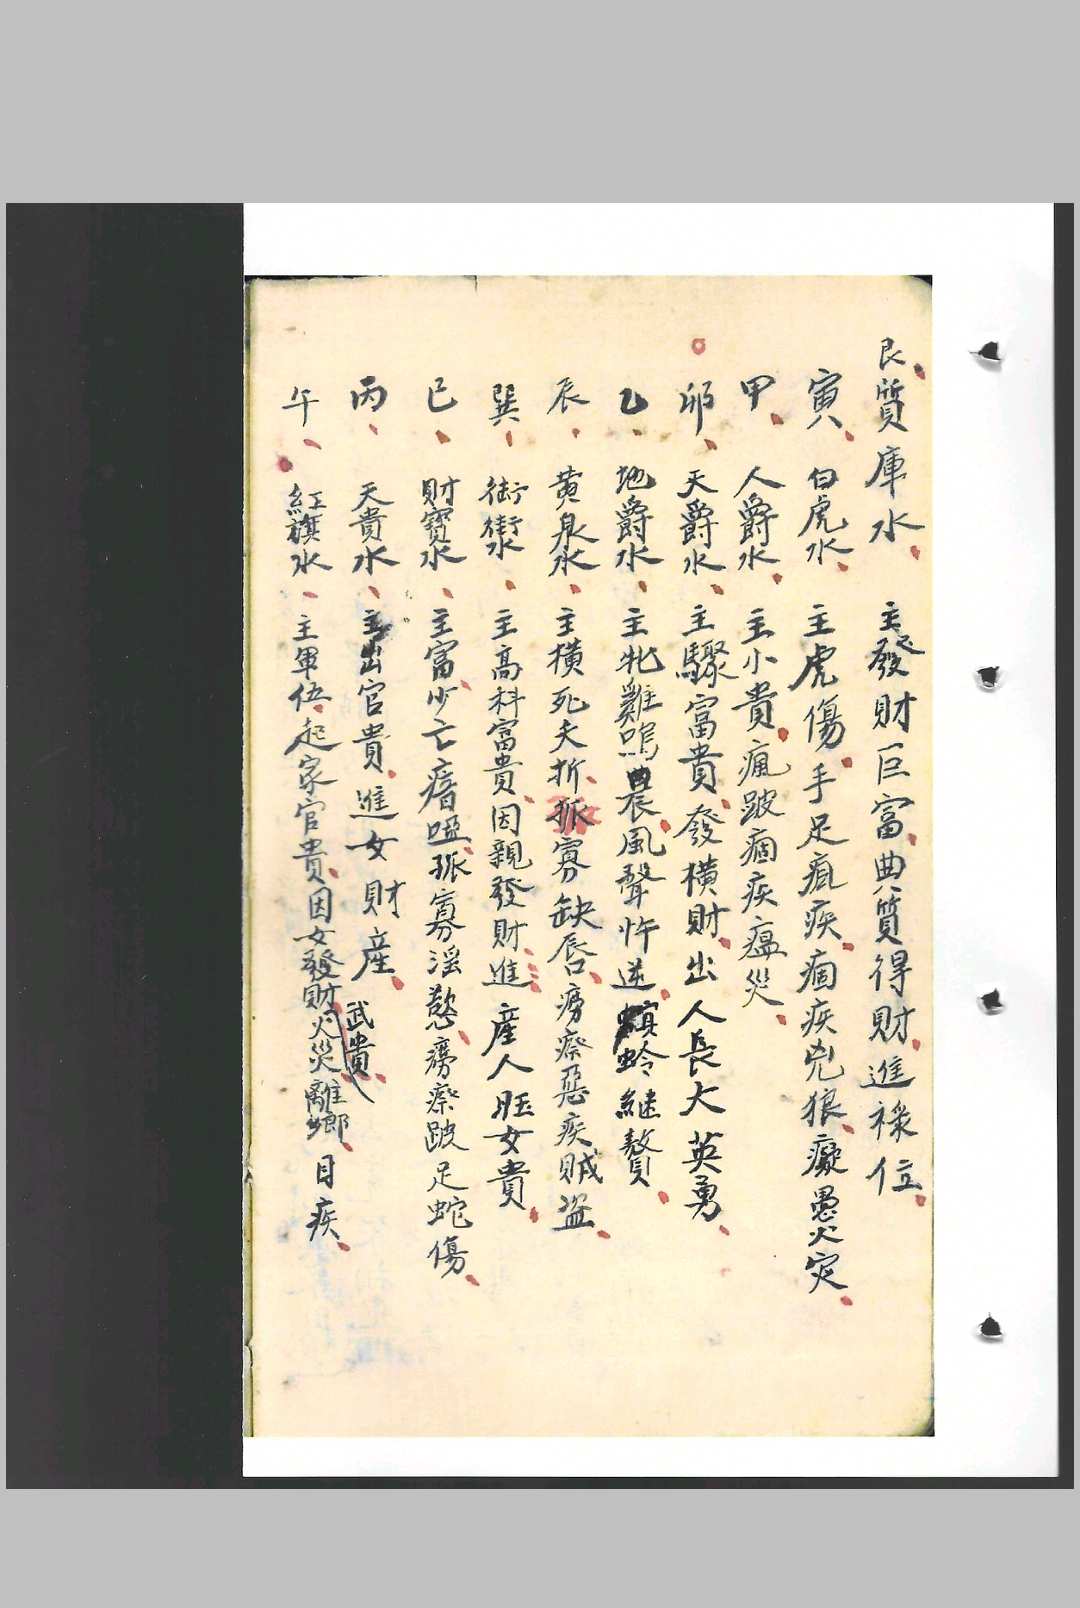 艮質庫水 主發財巨富典質得財進祿位
寅 白虎水 主虎傷手足瘋疾痼疾兇狼癡愚火灾
甲 人爵水 主小貴瘋跛痼疾瘟災
卯 天爵水 主驟富貴發橫財出人長大英勇
乙 地爵水 主牝雞鳴農風聲忤逆螟蛉継贅
辰 黄泉水 主橫死夭折孤寡缺唇癆瘵惡疾賊盗
巽 街衝水 主高科富貴因親發財進產人旺女貴
巳 財寶水 主富少亡瘖啞孤寡淫慾癆瘵跛足蛇傷
丙 天貴水 主出官貴進女財產武貴
午 紅旗水 主軍伍起家官貴因女發財火災離鄉目疾